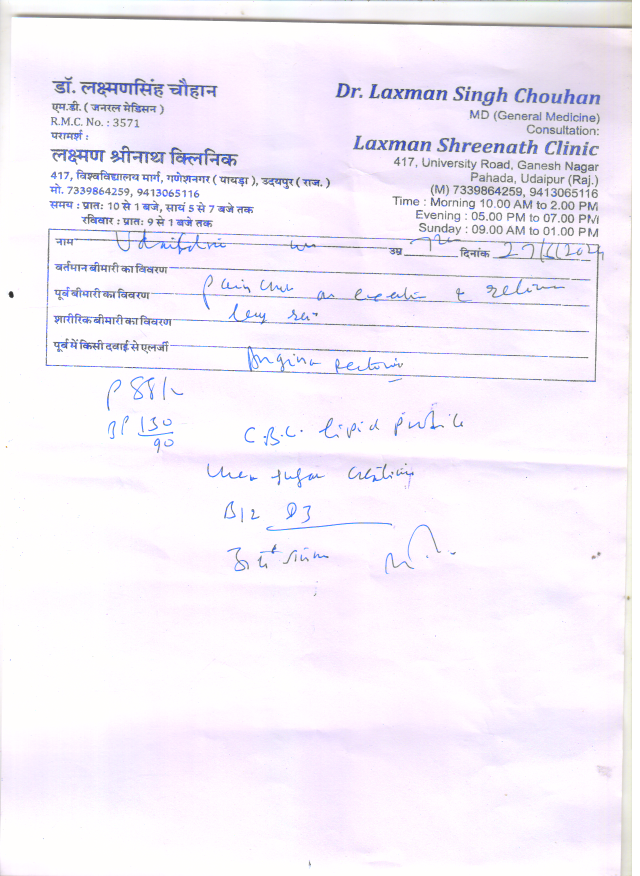 डॉ. लक्ष्मणसिंह चौहान
एम.डी. ( जनरल मेडिसन )
R.M.C. No. : 3571
परामर्श :
लक्ष्मण श्रीनाथ क्लिनिक
417, विश्वविद्यालय मार्ग, गणेशनगर ( पायड़ा ), उदयपुर ( राज. )
मो. 7339864259, 9413065116
समय : प्रातः 10 से 1 बजे, सायं 5 से 7 बजे तक
रविवार : प्रातः 9 से 1 बजे तक
Dr. Laxman Singh Chouhan
MD (General Medicine)
Consultation:
Laxman Shreenath Clinic
417, University Road, Ganesh Nagar
Pahada, Udaipur (Raj.)
(M) 7339864259, 9413065116
Time : Morning 10.00 AM to 2.00 PM
Evening : 05.00 PM to 07.00 PM
Sunday : 09.00 AM to 01.00 PM
नाम उम्र दिनांक 27/6/2024
वर्तमान बीमारी का विवरण
पूर्व बीमारी का विवरण pain
शारीरिक बीमारी का विवरण
पूर्व में किसी दवाई से एलर्जी Angina pectoris
P 88/
BP 130/90
C.B.C. lipid profile
Urea sugar creatinine
B12 D3